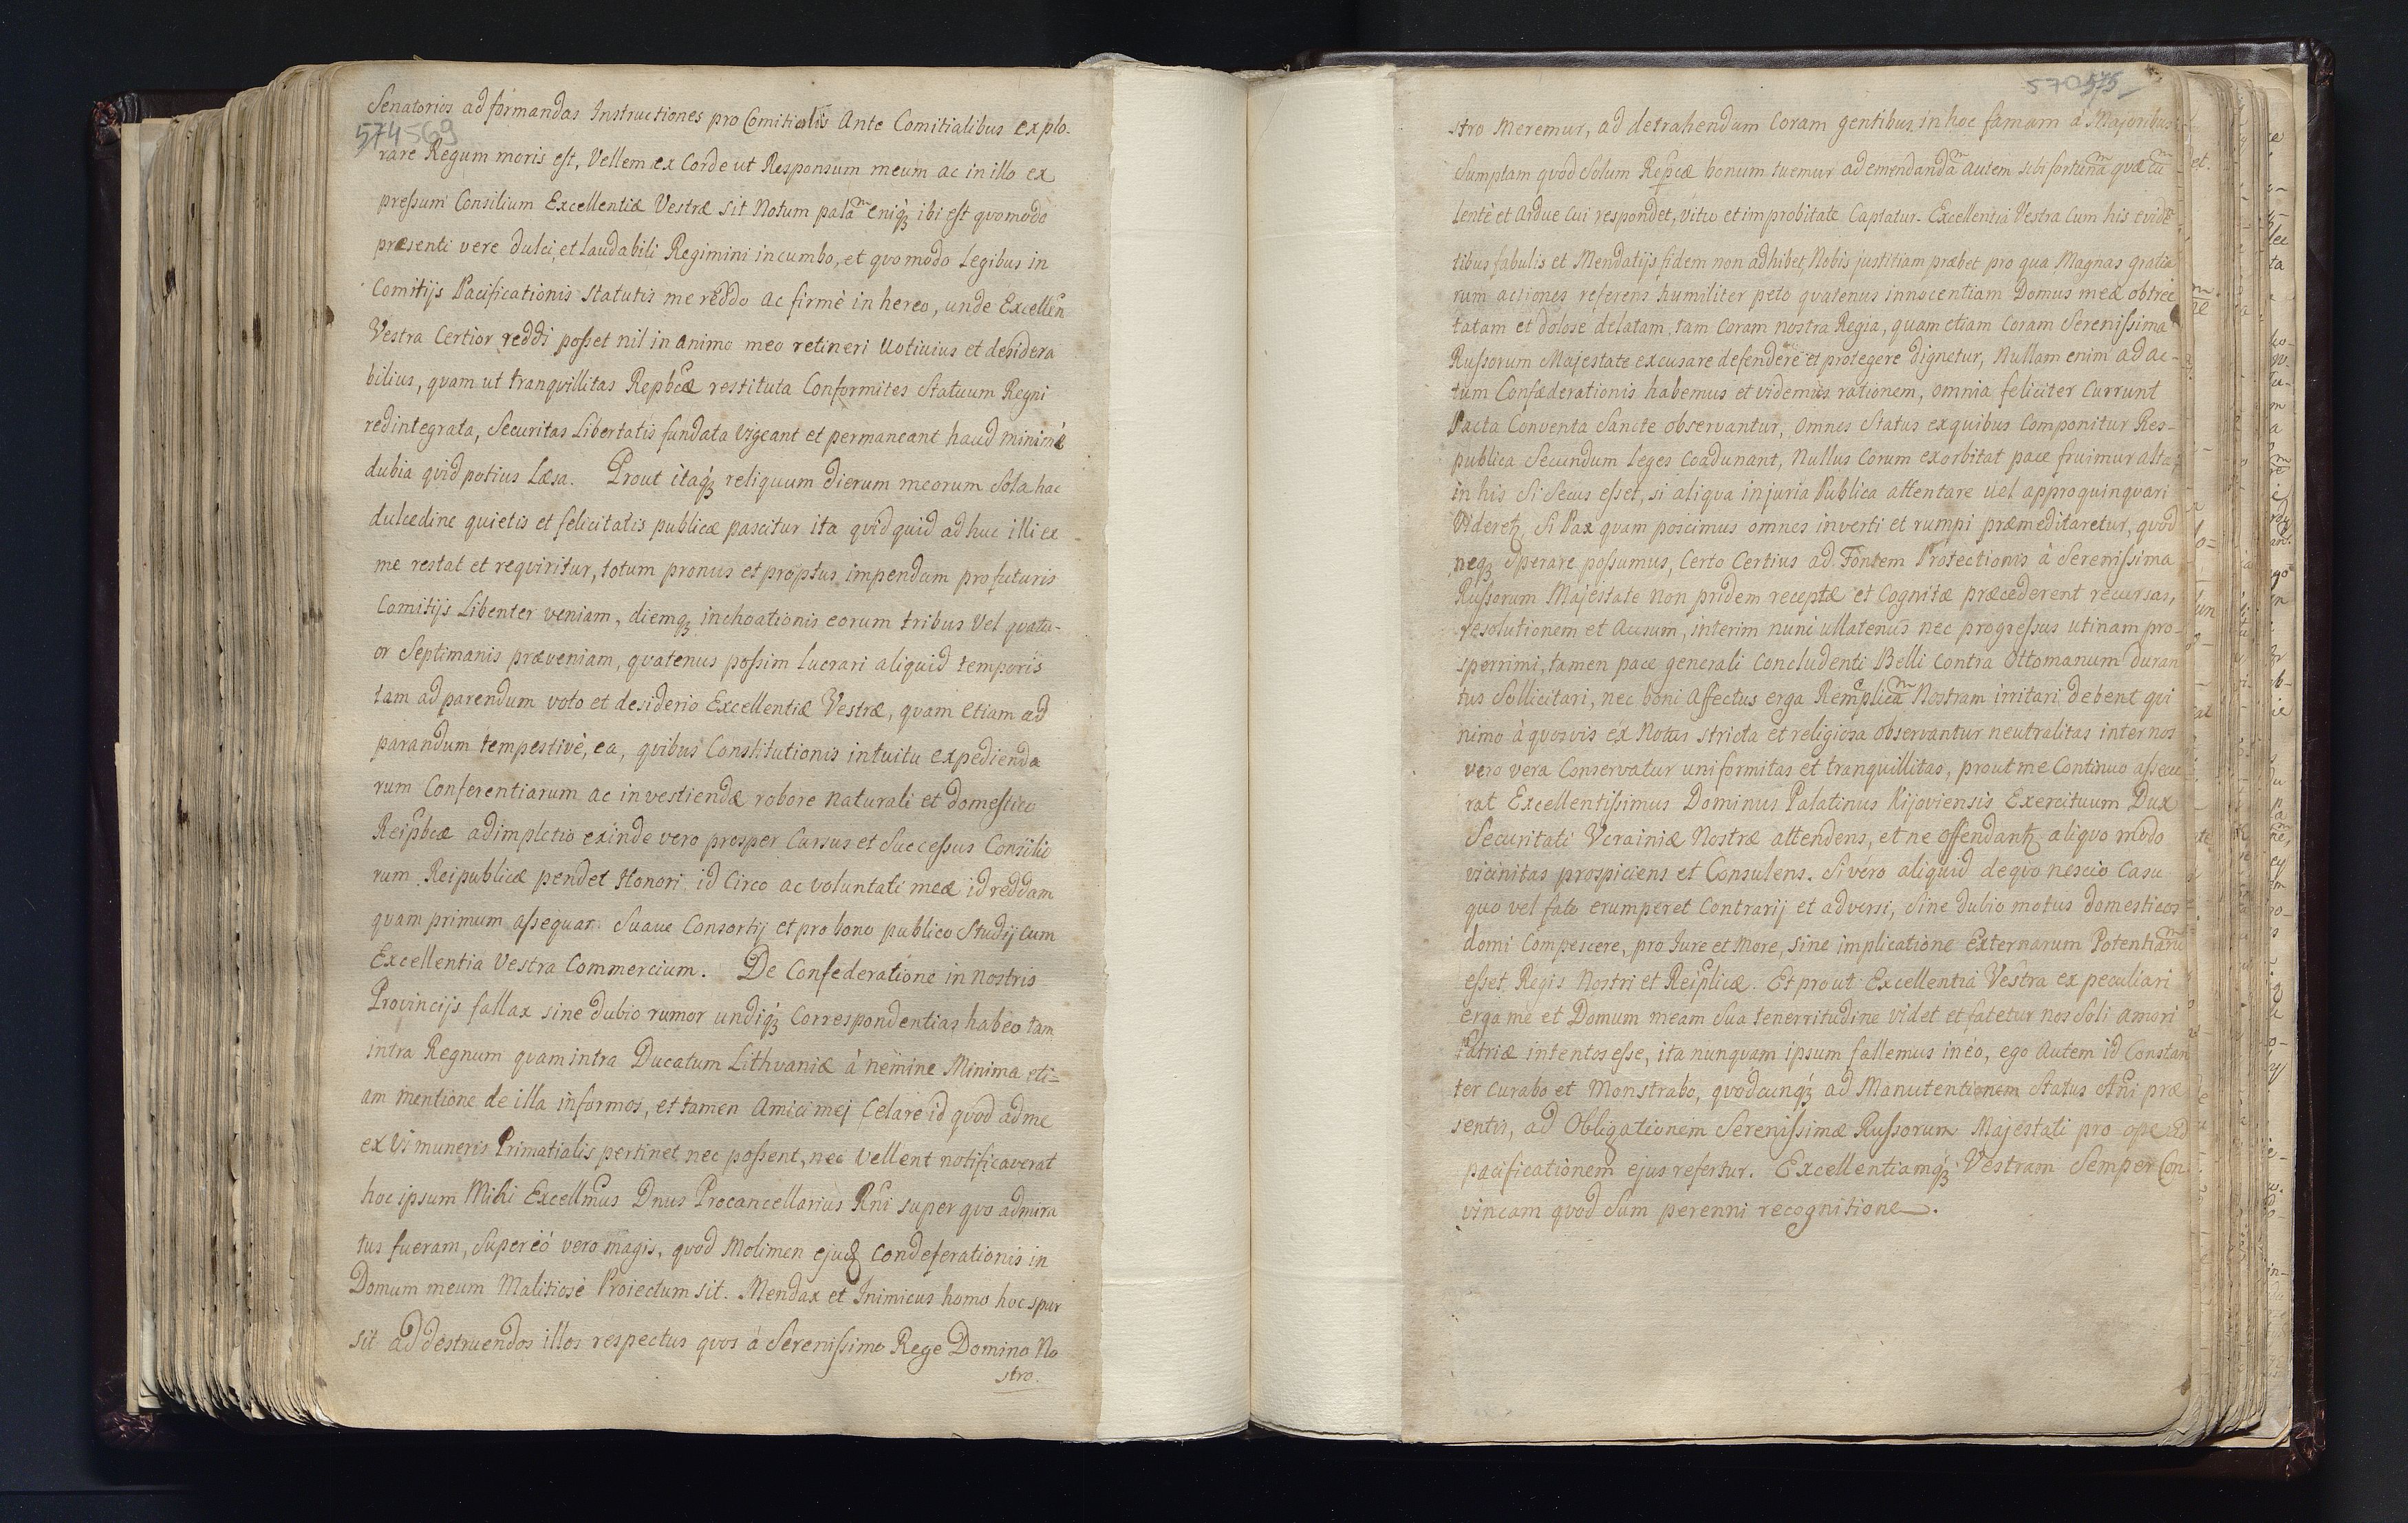 Senatorios ad formandas Instructiones pro Comitialis Ante Comitialibus explo-
574 569
rare Regum moris est, Vellem ex Corde ut Responsum meum ac in illo ex
pressum Consilium Excellentiæ Vestræ sit Notum palam eniq́ꝫ ibi est quomodo
præsenti vere dulci, et laudabili Regimini incumbo, et quomodo Legibus in
Comitijs Pacificationis Statutis me reddo ac firmè in hereo, unde Excellen
Vestra Certior reddi posset nil in animo meo retineri Uotiuius et desidera
bilius, quam ut tranquillitas Repbcæ restituta Conformites Statuum Regni
redintegrata, Securitas Libertatis fundata vigeant et permaneant haud minimè
dubia quid potius Læsa. Prout itaq́ꝫ reliquum dierum meorum Sola hac
dulcedine quietis et felicitatis publicæ pascitur ita quidquid ad huc illi ex
me restat et requiritur, totum pronus et proptus impendam pro futuris
Comitijs Libenter veniam, diemqꝫ inchoationis eorum tribus Vel quatu-
or Septimanis præveniam, quatenus possim lucrari aliquid temporis
tam ad parendum voto et desiderio Excellentiæ Vestræ, quam etiam ad
parandum tempestivè, ea, quibus Constitutionis intuitu expedienda
rum Conferentiarum ac investiendæ robore naturali et domestico
Reipbcæ adimpletio exinde vero prosper Cursus et Successus Consilio
rum Reipublicæ pendet Honori id Circo ac voluntati meæ id reddam
quam primum assequar Suave Consortij et pro bono publico Studij cum
Excellentia Vestra Commercium. De Confederatione in nostris
Provincijs fallax sine dubio rumor undiq́ꝫ Correspondentias habeo tam
intra Regnum quam intra Ducatum Lithvaniæ à nemine Minima eti=
am mentione de illa informor, et tamen Amici mej Celare id quod ad me
ex Vi muneris Primatialis pertinet nec possent, nec vellent notificaverat
hoc ipsum Mihi Excellmus Dnus Procancellarius Rni super quo admira
tus fueram, super eò vero magis, quod Molimen ejusd condeferationis in
Domum meum Malitiosè Proiectum sit. Mendax et Inimicus homo hoc spar
sit ad destruendos illos respectus quos à Serenissimo Rege Domino No
stro.
570 575
stro Meremur, ad detrahendum Coram gentibus in hoc famam à Majoribus
Sumptam quòd Solum Repcæ bonum tuemur ad emendandam autem sibi fortunam quæ tum
lentè et ardue Cui respondet, vitio et improbitate Captatur. Excellentia Vestra Cum his evidē
tibus fabulis et Mendatijs fidem non adhibet, Nobis justitiam præbet pro qua Magnas gratia
rum actiones referens humiliter peto quatenus innocentiam Domus meæ obtrec
tatam et dolosè delatam, tam Coram nostra Regia, quam etiam Coram Serenissima
Russorum Majestate excusare defendere et protegere dignetur, Nullam enim ad ac-
tum Confæderationis habemus et videmus rationem, omnia feliciter Currunt
Pacta Conventa Sancte observantur, omnes Status ex quibus Componitur Res-
publica Secundum Leges Coadunant, Nullus Eorum exorbitat pace fruimur alta
in his Si Secus esset, si aliqua injuria Publica attentare vel approquinquari
Videretꝫ, Si Pax quam poscimus omnes inverti et rumpi præmeditaretur, quod
neqꝫ Sperare possumus, Certo Certius ad Fontem Protectionis à Serenissima
Russorum Majestate non pridem receptæ et Cognitæ præcederent recursus,
resolutionem et Ausum, interim nuni ullatenus nec progressus utinam pro-
sperrimi, tamen pace generali Concludenti Belli Contra Ottomanum duran
tus Sollicitari, nec boni Affectus erga Remplicam Nostram irritari debent qui
nimo à quosvis éx Notus stricta et religiosa observantur neutralitas inter nos
vero vera Conservatur uniformitas et tranquillitas, prout me Continuo assecu
rat Excellentissimus Dominus Palatinus Kijoviensis Exercituum Dux
Securitati Vcrainiæ Nostræ attendens, et ne offendantꝫ aliquo modo
vicinitas prospiciens et Consulens. Si vero aliquid de quo nescio Casu
quo vel fato erumperet Contrarij et adversi, Sine dubio motus domesticos
domi Compescere, pro Jure et More, sine implicatione Externarum Potentiarum
esset Regis Nostri et Reiplicæ. Et prout Excellentia Vestra ex peculiari
erga me et Domum meam Sua tenerritudine videt et fatetur nos Soli amori
Patriæ intentos esse, ita nunquam ipsum fallemus in eo, ego autem id Constan
ter Curabo et Monstrabo, quodcunq́ꝫ ad Manutentionem Status Rni præ
sentis, ad Obligationem Serenissimæ Russorum Majestati pro ope ad
pacificationem ejus refertur. Excellentiamq́ꝫ Vestram Semper Con
vincam quod Sum perenni recognitione.